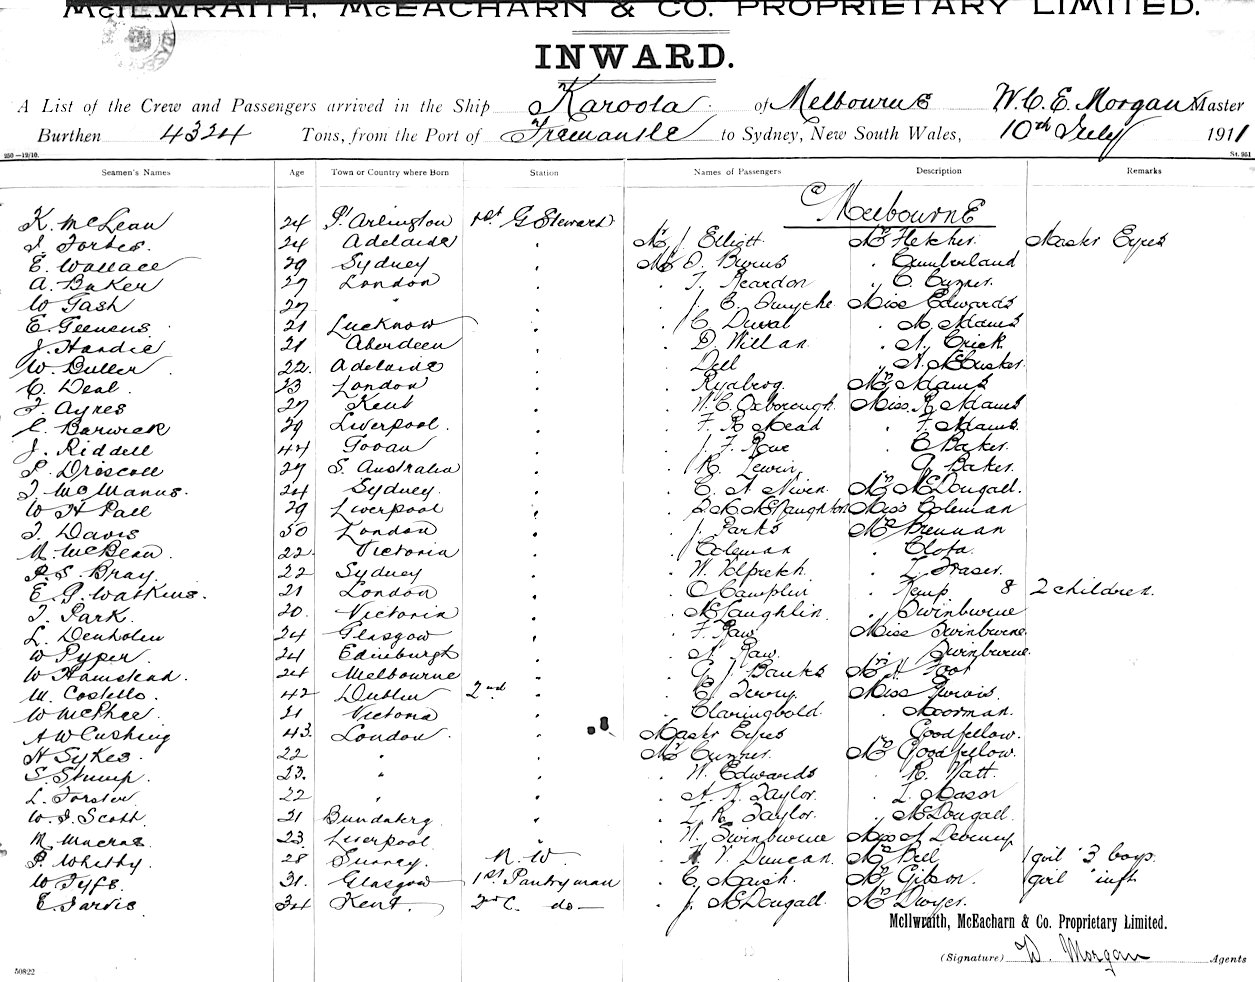 McILWRAITH, McEACHARN & CO. PROPRIETARY LIMITED.
INWARD.
A List of the Crew and Passengers arrived in the Ship Karoola of Melbourne W. C. E. Morgan Master
Burthen 4324 Tons, from the Port of Fremantle to Sydney, New South Wales, 10th July 1911
250—12/10. St. 951
Seamen's Names Age Town or Country where Born Station Names of Passengers Description Remarks
Melbourne
K. McLean 24 Pt Arlington 1st G Steward
J. Forbes. 24 Adelaide " Mr J. Elliott Mrs Fletcher. Master Eyres
E. Wallace 29 Sydney " Mr D. Burns " Cumberland
A. Baker 27 London " " T. Reardon " C. Curner.
W Tash 27 " " " J. C. Smythe Miss Edwards
E. Teevens 21 Lucknow " " C. Duval " M. Adams
J. Hardie 21 Aberdeen " " D. Willan " A. Crick
W. Buller 22. Adelaide " " Dell " A. McCusker.
C. Deal. 23 London " " Rydberg. Mrs Adams
F. Ayres 27 Kent " " W. C. Oxborough. Miss R. Adams
C. Barwick 29 Liverpool. " " F. R. Mead " F. Adams.
J. Riddell 44 Govan " " J. F. Rowe " E Baker.
P. Driscoll 27 S. Australia " " R. Lewin " G. Baker.
J. McManus. 24 Sydney. " " C. A. Niven Mrs McDougall.
W H Pall 29 Liverpool " " McNaughton Miss Coleman
J. Davis 50 London " " J. Parks Mrs Brennan
N. McBean. 22 Victoria " " Coleman " Clota.
P. S. Bray. 22 Sydney " " W. " L. Fraser.
E. G. Watkins. 21 London " " C. Camplin " Kemp & 2 children.
J. Park. 20. Victoria " " McLaughlin. " Swinburne
L. Denholm 24 Glasgow " " F. Raw. Miss Swinburne
W Pyper. 24 Edinburgh " " A. Raw. " Swinburne
W Hamstead. 24 Melbourne " " G. J. Banks Mrs A. Foot
M. Costello. 42 Dublin 2nd " " E. Terry. Miss
W McPhee. 21 Victoria " " Claringbold. " Moorman.
A W Cushing 43. London. " Master Eyres " Goodfellow.
H Sykes. 22 " " Mr Curner. Mrs Goodfellow.
S. Stump. 23. " " " W. Edwards " R. Natt.
L. Forster. 22 " " " A. K. Taylor. " L. Mason
W. J. Scott. 21 Bundaberg. " " L. R. Taylor. " McDougall.
M. Macrae. 23. Liverpool. " " W. Swinburne Miss A Deveney
P. Whitby. 28 Surrey. N. W. " A. V. Duncan. Mrs Bell girl & 3 boys.
W Fyfe. 31. Glasgow 1st Pantryman " C. Marsh. Mrs Gibson. girl & inft
E. Jarvis. 34 Kent. 2nd C. do— " J. McDougall. Mrs Dwyer.
McIlwraith, McEacharn & Co. Proprietary Limited.
(Signature) W. Morgan Agents
50822